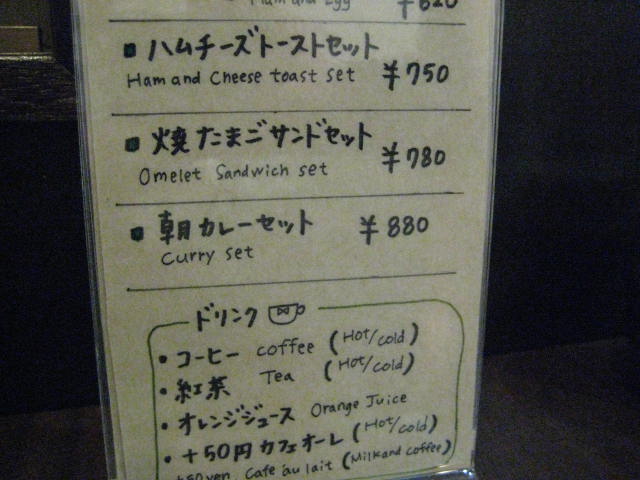 Ham and Egg ¥620
ハムチーズトーストセット
Ham and Cheese toast set ¥750
焼たまごサンドセット
Omelet Sandwich set ¥780
朝カレーセット ¥880
Curry set
ドリンク
・コーヒー coffee (Hot/cold)
・紅茶 Tea (Hot/cold)
・オレンジジュース Orange Juice
・+50円カフェオーレ (Hot/cold)
+50yen Cafe au lait (Milk and coffee)